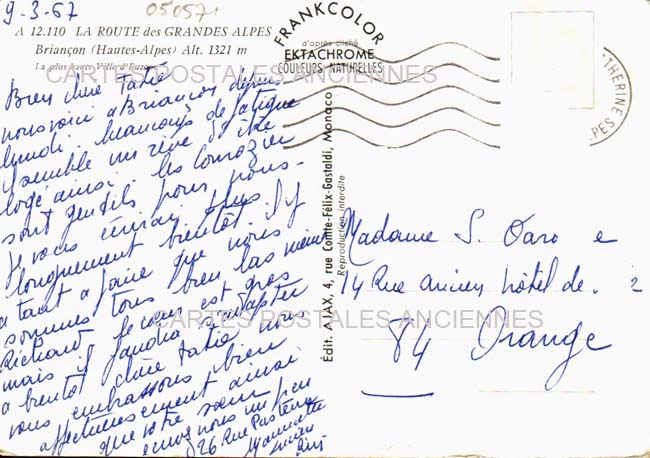 9-3-67
050571
A 12.110 LA ROUTE des GRANDES ALPES
Briançon (Hautes-Alpes) Alt. 1321 m
La plus haute Ville d'Europe
CARTES POSTALES ANCIENNES
FRANKCOLOR
d'après cliché
EKTACHROME
COULEURS NATURELLES
Bien chère Tatie
nous voici a Briançon depuis
lundi. beaucoup de fatigue
semble un rêve d'être
logé ainsi. les
sont gentils pour nous.
Je vous écrirai plus
longuement bientôt. il y
a tant a faire que nous
sommes tous bien las même
Richard. Le cœur est gros
mais il faudra s'adapter
a bientôt chère tatie nous
vous embrassons bien
affectueusement ainsi
que votre sœur
nous un peu
26 Rue Pasteur
Édit. AJAX, 4, rue Comte-Félix-Gastaldi, Monaco
Reproduction interdite
Madame S.
14 Rue ancien hôtel de
84 Orange
CARTES POSTALES ANCIENNES